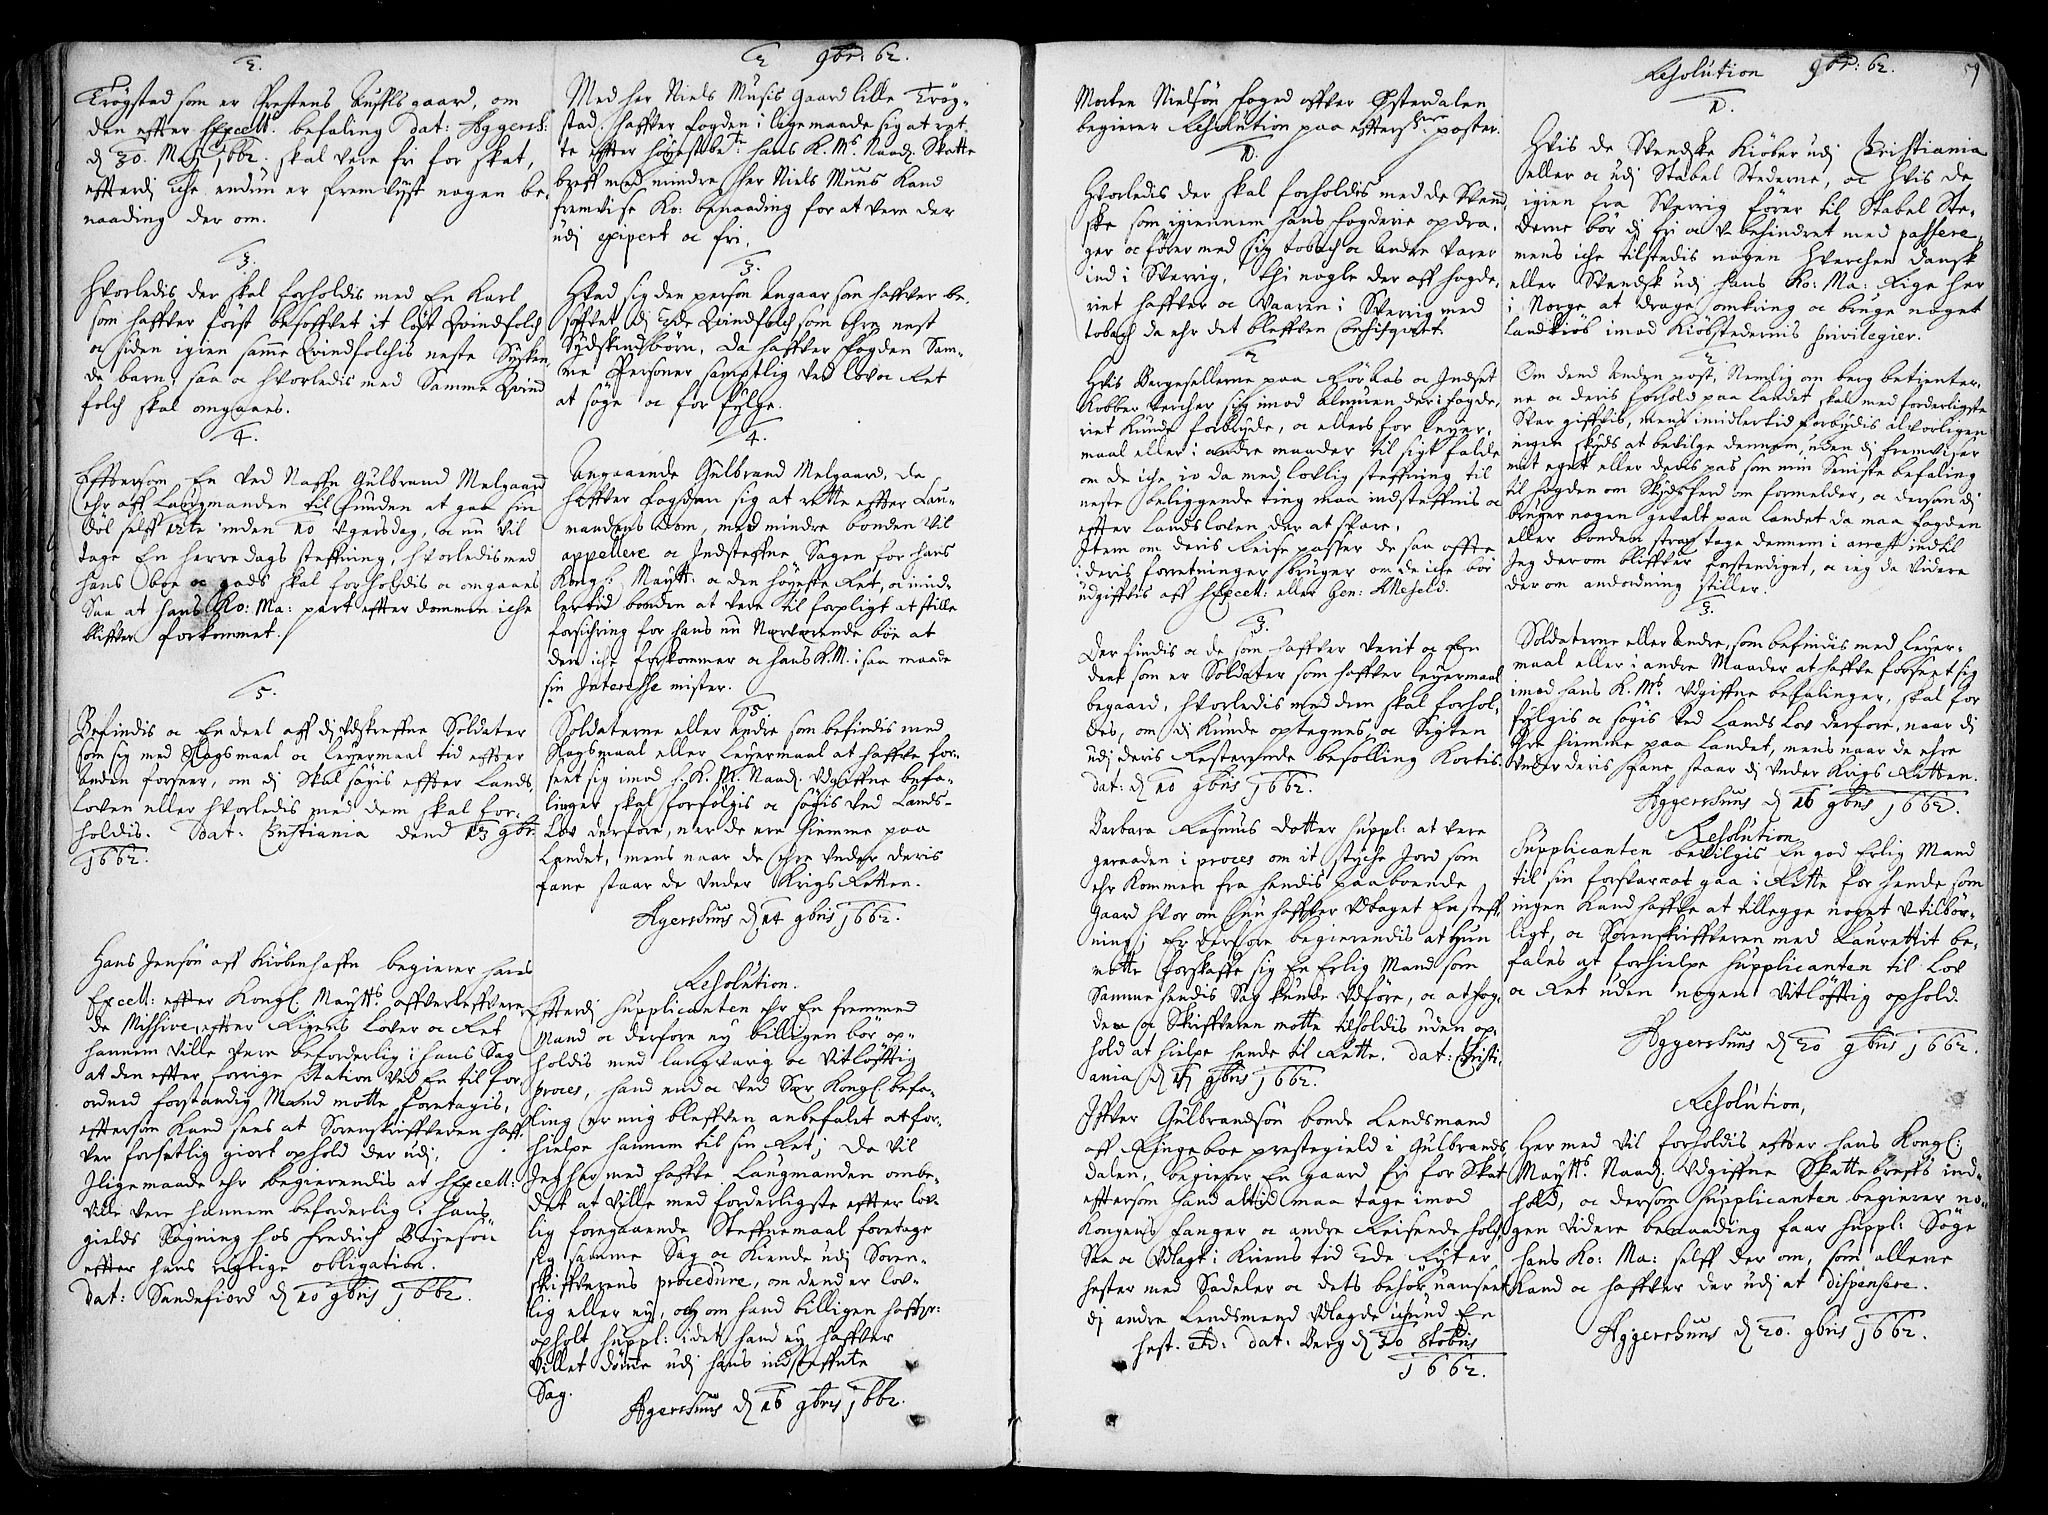 2.
Trøgstad som er Prestens Auffls gaard, om
den effter hExcell: befaling dat: Aggersh:
d 30. Maj 1662. skal vere fri for skat,
efferdj iche endnu er fremvijst nogen be-
naading der om.
3.
Hvorledis der skal forholdis med En Karl
som haffver først besoffvet it løst Qvindfolch
oc siden igien samme Qvindfolchis neste Sysken
de barn, saa oc hvorledis med Samme Qvind
folch skal omgaaes.
4.
Efftersom En ved Naffn Gulbrand Melgaard
ehr aff Laugmanden til funden at gaa sin
Døl selff 12te inden 10 Ugersdag, oc nu vil
tage En herredags steffning, hvorledis med
hans boe oc gods skal forholdis oc omgaaes
Saa at hans Ko: Ma: part effter dommen iche
bliffver forkommet.
5.
Befindis oc En deel aff dj Udskreffne Soldater
som sig med Slagsmaal oc Leyermaal tid effter
anden forseer, om dj skal søgis effter Lands
Loven eller hvorledis med dem skal for-
holdis. Dat: Christiania dend 13 9br.
1662.
Hans Jensøn aff Kiøbenhaffn begierer hans
Excell: effter Kongl: Maytts offverleffvere
de Missive, effter Rigens Lover oc Ret
hannem ville vere beforderlig i hans Sag
at den effter forrige Citation ved En til for
ordned forstandig Mand motte foretagis,
efftersom Kand sees at Sorenskriffveren haff
ver forsetlig giort ophold der udj.
Jligemaade ehr begierendis at hExcell:
ville vere hannem beforderlig i hans
gields Søgning hos Fredrich Boyesøn
effter hans rigtige obligation.
Dat: Sandefiord d 10 9bris 1662.
2 9br: 62.
Med her Niels Musis gaard lille Trøg-
stad haffver fogden i lige maade sig at ret-
te effter høyestbete hans K. Ms Naadj Skatte
breff med mindre her Niels Muus Kand
fremvise Ko: benaading for at vere der
udj exipert oc fri.
3.
Hvad sig den person Angaar som haffver be-
soffvet dj 2de Qvindfolch som ehre nest
Sydskindebørn, da haffver Fogden Sam-
me Personer samptlig ved lov oc Ret
at søge oc for følge.
4.
Angaaende Gulbrand Melgaard, da
haffver fogden sig at rette effter Lau-
mandens Dom, med mindre bonden vil
appellere oc Indsteffne Sagen for hans
Kongl: Maytt: oc den høyeste Ret, oc imid-
lertid bonden at vere til forpligt at stille
forsichring for hans nu Nærværende boe at
den iche forkommer oc hans K. M. i saa maade
sin Interesse mister.
5
Soldaterne eller Andre som befindis med
Slagsmaal eller Leyermaal at haffve for-
seet sig imod h. K. M. Naadj Udgiffne befa-
linger skal forfølgis oc søgis ved Lands-
Lov derfore, nar de ere hiemme paa
Landet, mens naar de ehre under deris
fane staar de under Krigs Retten.
Agershuus d 14 9bris 1662.
Resolution.
Efterdj Supplicanten ehr En fremmed
Mand oc derfore ey billigen bør op-
holdis med langvarig oc vitløfftig
proces, hand end oc ved Sær Kongl: befa-
ling er mig bleffven anbefalet at for-
hielpe hannem til sin Ret; Da vil
Jeg her med haffve Laugmanden ombe-
det at ville med forderligste effter lov-
lig foregaaende Steffnemaal foretage
sig samme Sag oc Kiende udj Soren-
skriffverens procedure, om dend er lov-
lig eller ey, och om hand billigen haffver
opholt Suppl: i det hand ey haffver
villet dømme udj hans indsteffnte
Sag.
Agershuus d 16 9bris 1662.
Morten Nielsøn Foged offver Østerdalen
begierer Resolution paa effterschrne poster.
1.
Hvorledis der skal forholdis med de Svend
ske som igiennem hans fogderie opdra-
ger oc fører med sig tobach oc andre varer
ind i Sverrig, thi nogle der aff fogde-
riet haffver oc vaaren i Sverrig med
tobach da ehr det bleffven Confisqueret.
2
Hvis Bergesellerne paa Rør Aas oc Indset
Kobber Vercher sig imod Almuen der i fogde-
riet Kunde forbryde, oc ellers for Leyer-
maal eller i andre maader til sigt falde
om de iche io da med lovlig steffning til
neste beliggende ting maa indsteffnis oc
effter Landsloven der at svare.
Item om deris Reise passer de saa offte
i deris forretninger bruger om de iche bør
udgiffvis aff hExcell: eller Gen: Allefeld.
3.
Der findis oc de som haffver verit oc Een
deel som er Soldater som haffver Leyermaal
begaaed, hvorledis med dem skal forhol-
des, om dj Kunde optegnes oc Sigten
udj deris Resterende besolling Kortis.
Dat: d 10 9bris 1662.
Barbara Rasmus Dotter Suppl: at vere
geraaden i proces om it støche Jord som
ehr Kommen fra hendis paaboende
Gaard hvor om hun haffver udtaget En steff
ning; Er derfore begierendis at Hun
motte forskaffe sig En Erlig Mand som
Samme hendis Sag kunde udføre, oc at fog-
den oc Skriffveren motte tilholdis uden op-
hold at hielpe hende til Rette. Dat: Christi-
ania d 17 9bris 1662.
Iffver Gulbrandsøn bonde Lendsmand
aff Ringeboe prestegield i Gulbrands
dalen, begierer En gaard fri for Skat
efftersom hand altid maa tage imod
Kongens fanger oc andre Reisende folch
Saa oc udlagt i Kriens tid 2de Ryter
hester med Sadeler oc dets behør, uanseet
dj andre Lendsmend udlagde ichund En
hest. etc: dat: Berg d 30 8tobris
1662.
Resolution 9br: 62. 7
1.
Hvis de Svendske Kiøber udj Christiania
eller oc udj Stabel Stederne, oc hvis de
igien fra Sverrig fører til Stabel Ste-
derne bør dj fri oc ubehindret med passere,
mens iche tilstedis nogen hverchen Dansk
eller Svendsk udj hans Ko: Ma: Rige her
i Norge at drage omkring oc bruge noget
Landkiøb imod Kiøbstedernis privilegier.
2
Om dend Anden post, Nemlig om berg betienter-
ne oc deris forhold paa Landet skal med forderligste
Svar giffvis, mens imidlertid forbydis alvorligen
ingen skyds at bevilge dennem, uden dj fremviser
mit eget eller deris pas som min Seniste befaling
til fogden om Skydsferd om formelder, oc dersom dj
bruger nogen gevalt paa Landet da maa fogden
eller bonden strax tage dennem i arrest indtil
Jeg derom bliffver forstendiget, oc ieg da videre
der om andordning stiller.
3.
Soldaterne eller Andre, som befindis med Leyer-
maal eller i andre Maader at haffve forseet sig
imod hans K. Ms. Udgiffne befalinger, skal for
følgis oc søgis ved Lands Lov derfore, naar dj
ehre hiemme paa Landet, mens naar de ehre
under deris Fane staar dj under Krigs Retten.
Aggershuus d 16 9bris 1662.
Resolution
Supplicanten bevilgis En god Erlig Mand
til sin forsvar at gaa i Rette for hende som
ingen Kand haffve at tillegge noget utilbør-
ligt, oc Sorenskriffveren med Laurettit be-
fales at forhielpe Supplicanten til Lov
oc Ret uden nogen vitløfftig ophold.
Aggershuus d 20 9bris 1662.
Resolution,
Her med vil forholdis effter hans Kongl:
Maytts. Naadj Udgiffne Skattebreffs ind-
hold, oc dersom Supplicanten begierer no-
gen videre benaading faar Suppl: Søge
hans Ko: Ma: selff der om, som allene
Kand oc haffver der udj at dispensere.
Aggershuus d 20. 9bris 1662.